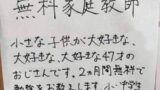 無料家庭教師
小さな子供が大好きな、
大好きな、大好きな47才の
おじさんです。2ヵ月間無料で
勉強をお教えします。小学生